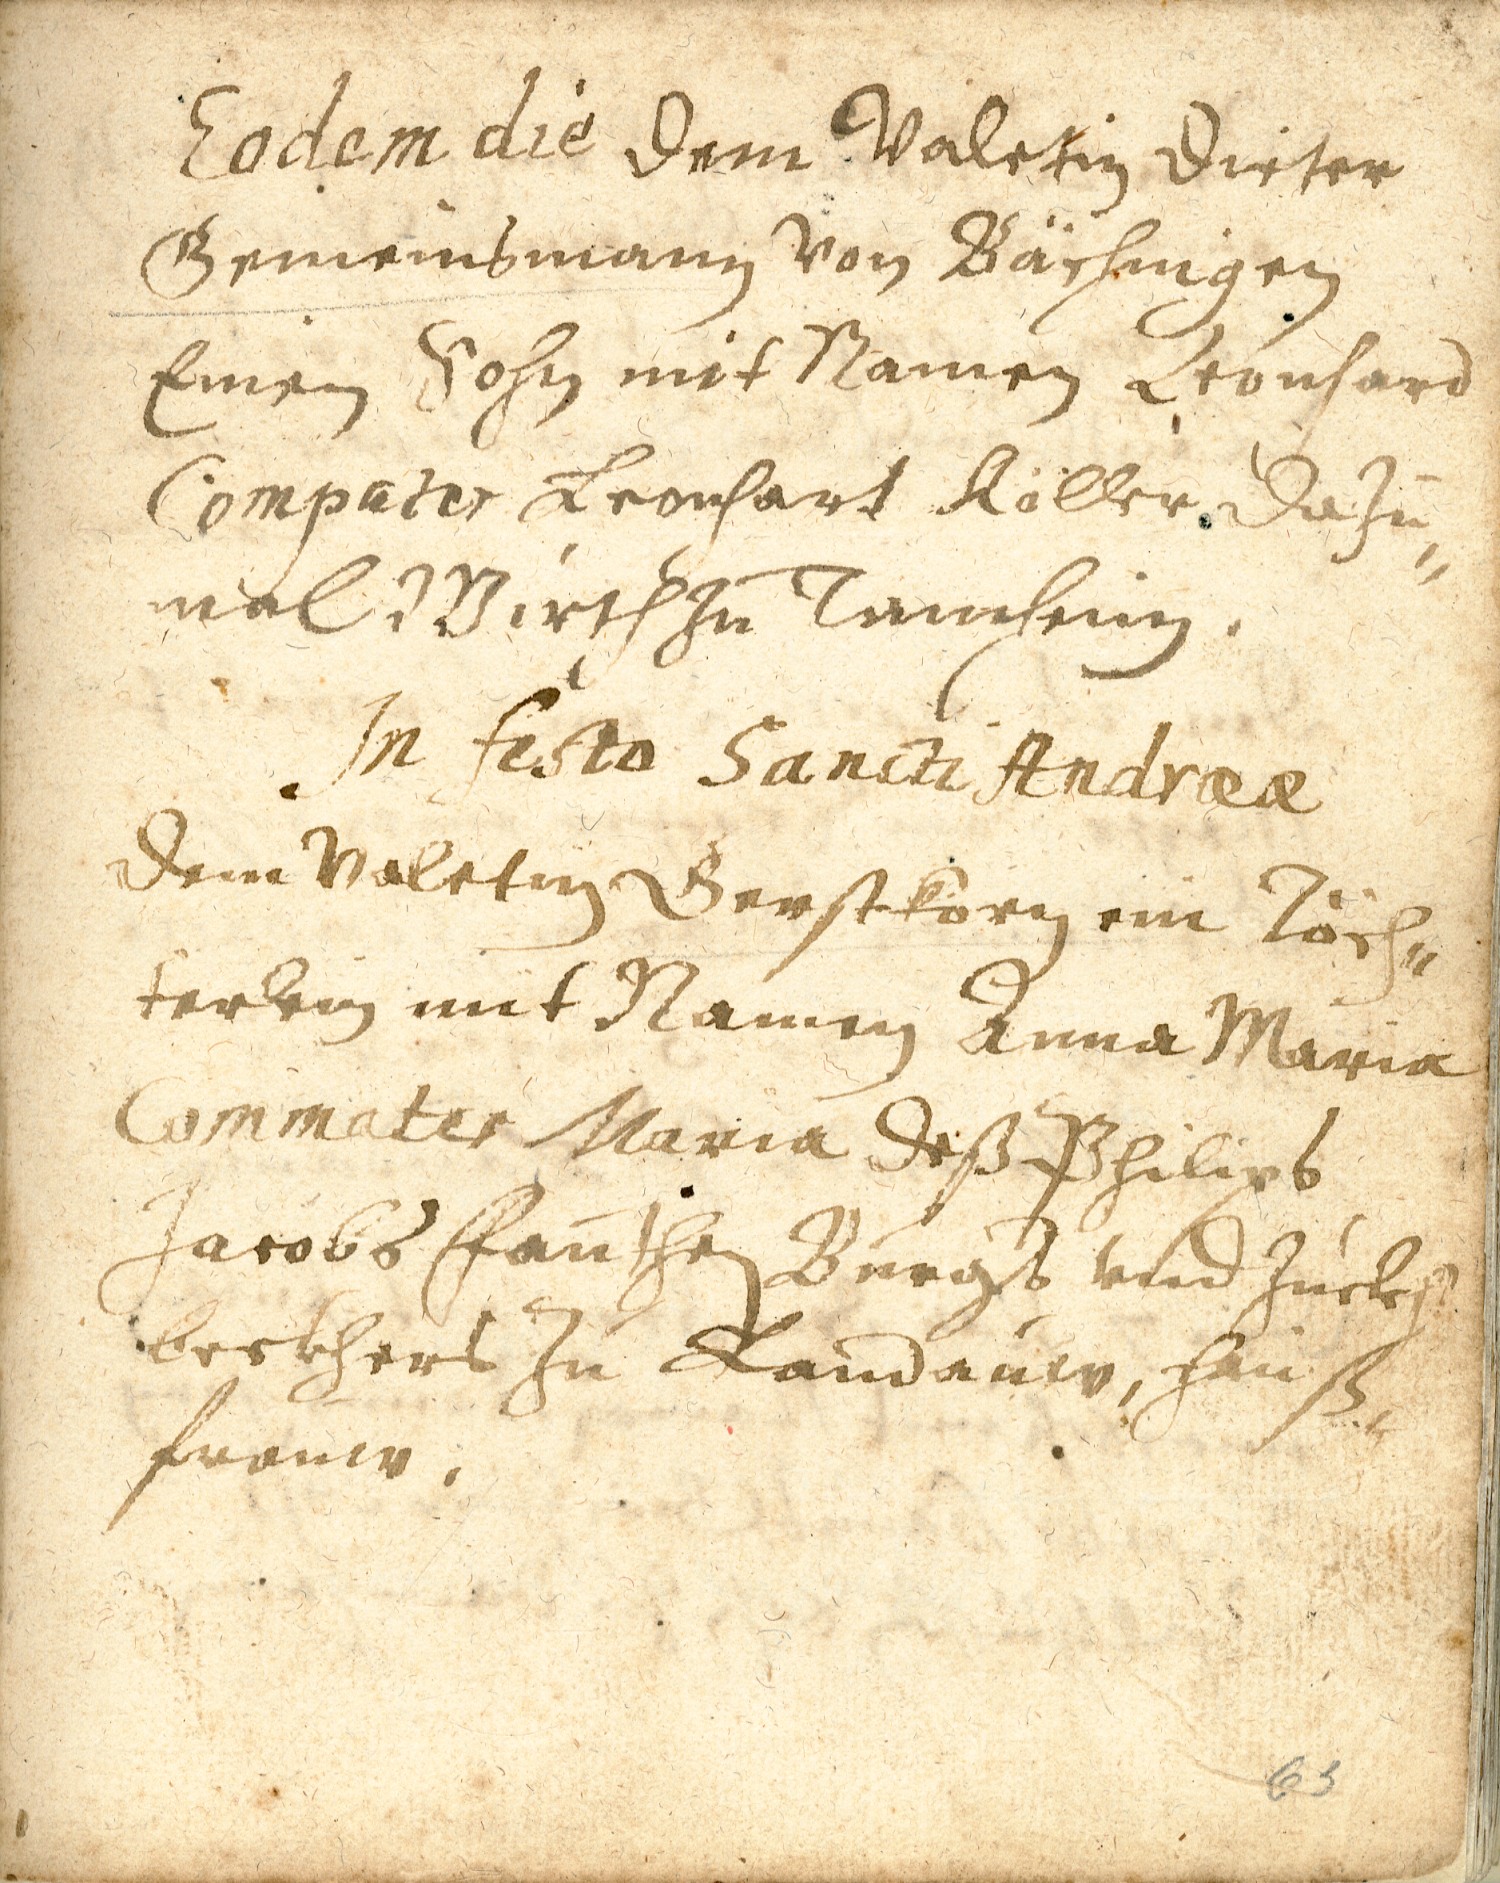 Eodem die dem Valetin Dieter
Gemeinsmann Von Bächingen
Einen Sohn mit Namen Leonhard
Compater Leonhart Köller dazu„
mal Wirth zu Damheim.
In festo Sancti Andreæ
dem Valetin Gerstkorn ein Töch„
terlein mit Namen Anna Maria
Commater Maria deß Philips
Jacobs Burgers vnd Zuckh
beckhers zu Landauw, hauß„
frauw.
63